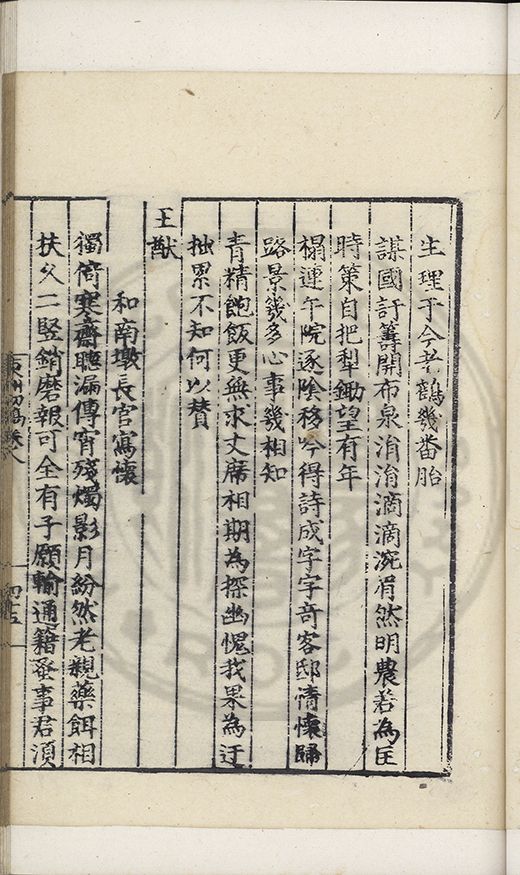 生理于今老鶴幾番胎
謀國訏籌開布泉涓涓滴滴沇㳙然明農若為匡
時策自把犁鋤望有年
榻連午院逐陰移吟得詩成字字奇客邸情懷歸
路景幾多心事幾相知
青精飽飯更無求丈席相期為探幽愧我果為迂
拙累不知何以賛
王猷
和南墩長官寓懷
獨倚寒齋聽漏傳宵殘燭影月紛然老親藥餌相
扶久二竪銷磨報可全有子願輸通籍蚤事君湏